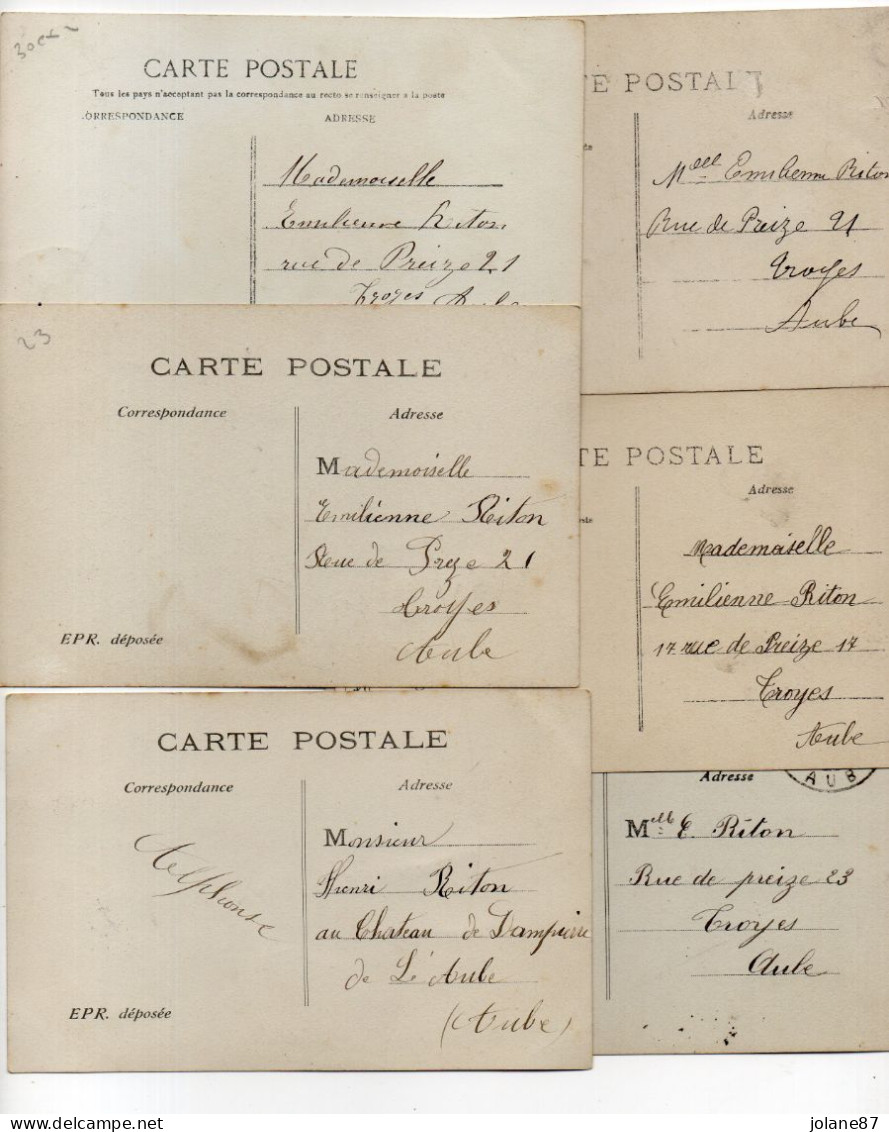 CARTE POSTALE
Tous les pays n'acceptant pas la correspondance au recto se renseigner a la poste
ORRESPONDANCE
ADRESSE
Mademoiselle
Emilienne Riton
rue de Preize 21
Troyes Aube
E POSTALE
Adresse
Melle Emilienne Riton
Rue de Preize 21
Troyes
Aube
23
CARTE POSTALE
Correspondance
Adresse
Mademoiselle
Emilienne Riton
Rue de Preze 21
Troyes
Aube
EPR. déposée
TE POSTALE
Adresse
Mademoiselle
Emilienne Riton
17 rue de Preize 17
Troyes
Aube
CARTE POSTALE
Correspondance
Adresse
Alphonse
Monsieur
Henri Riton
au Chateau de Dampierre
de L'Aube
(Aube)
EPR. déposée
Adresse
AUB
Melle E. Riton
Rue de preize 23
Troyes
Aube
jolane87